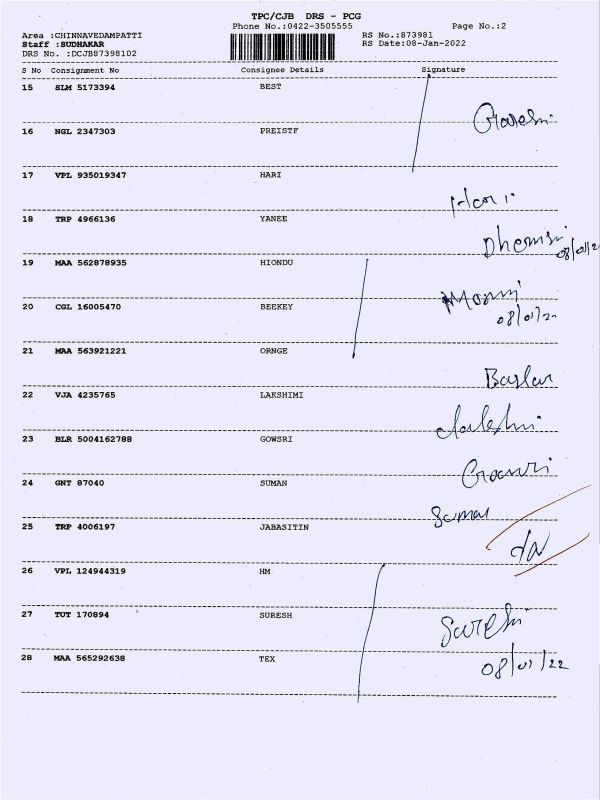 TPC/CJB DRS - PCG
Phone No.:0422-3505555 Page No.:2
Area :CHINNAVEDAMPATTI RS No.:873981
Staff :SUDHAKAR RS Date:08-Jan-2022
DRS No. :DCJB87398102
S No Consignment No Consignee Details Signature
15 SLM 5173394 BEST
16 NGL 2347303 PREISTF
17 VPL 935019347 HARI
Hari
18 TRP 4966136 YANEE
19 MAA 562878935 HIONDU
20 CGL 16005470 BEEKEY
21 MAA 563921221 ORNGE
22 VJA 4235765 LAKSHIMI
23 BLR 5004162788 GOWSRI
Gowri
24 GNT 87040 SUMAN
Suman
25 TRP 4006197 JABASITIN
26 VPL 124944319 HM
27 TUT 170894 SURESH
28 MAA 565292638 TEX
08/01/22